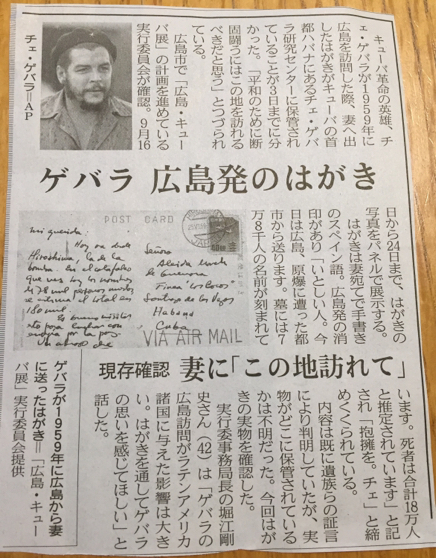 キューバ革命の英雄、チ
ェ・ゲバラが1959年に
広島を訪問した際、妻へ出
したはがきがキューバの首
都ハバナにあるチェ・ゲバ
ラ研究センターに保管され
ていることが3日までに分
かった。「平和のために断
固闘うにはこの地を訪れる
べきだと思う」とつづられ
ている。
広島市で「広島・キュー
バ展」の計画を進めている
実行委員会が確認。9月16
チェ・ゲバラ=AP
ゲバラ 広島発のはがき
日から24日まで、はがきの
写真をパネルで展示する。
はがきは妻宛てで手書き
のスペイン語。広島発の消
印があり「いとしい人。今
日は広島、原爆に遭った都
市から送ります。墓には7
万8千人の名前が刻まれて
POST CARD
mi querida:
Hoy va desde
Hiroshima, la de la
bomba. En el catafalco
que ves hay los nombres
de 78 mil
el total en
180 mil.
Señora
Aleida March
de Guevara
Habana
Cuba
VIA AIR MAIL
現存確認 妻に「この地訪れて」
います。死者は合計18万人
と推定されています」と記
され「抱擁を。チェ」と締
めくくられている。
内容は既に遺族らの証言
により判明していたが、実
物がどこに保管されている
かは不明だった。今回はが
きの実物を確認した。
実行委事務局長の堀江剛
史さん(42)は「ゲバラの
広島訪問がラテンアメリカ
諸国に与えた影響は大き
い。はがきを通してゲバラ
の思いを感じてほしい」と
話した。
ゲバラが1959年に広島から妻
に送ったはがき=「広島・キュー
バ展」実行委員会提供